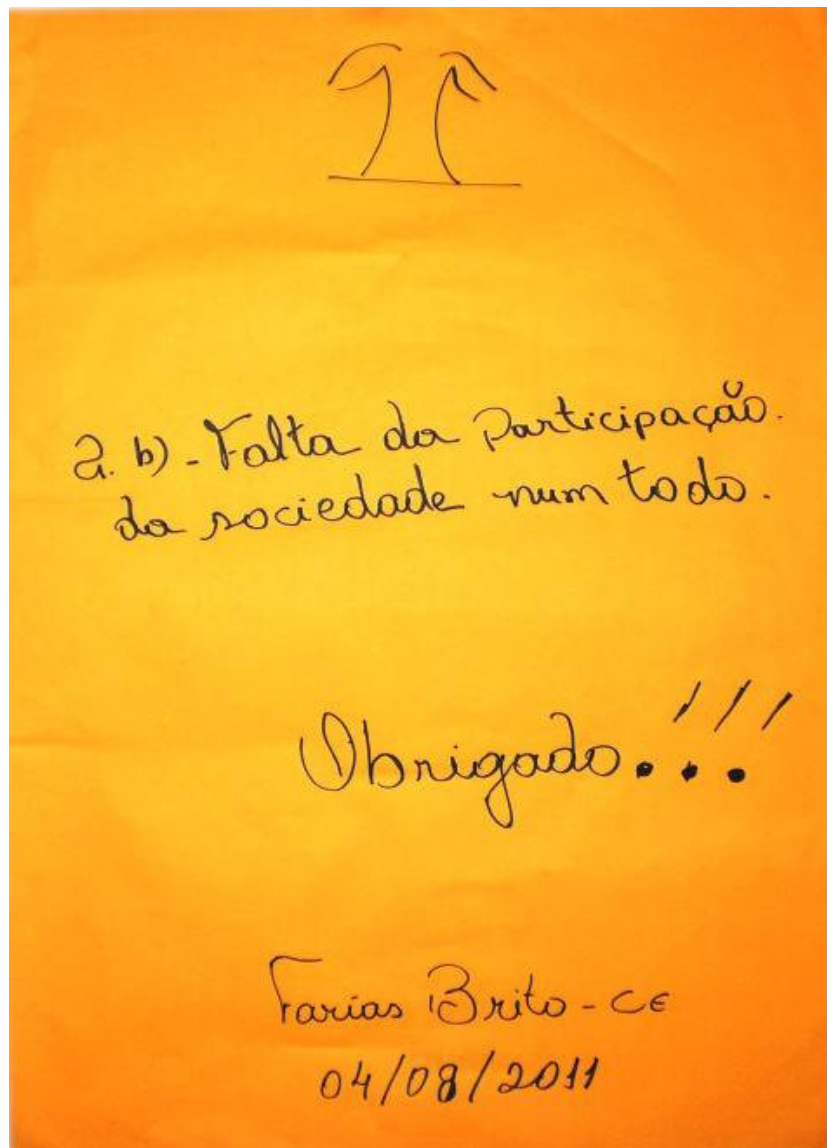 2. b) - Falta da Participação.
da sociedade num todo.
Obrigado.!!!
Farias Brito - CE
04/08/2011